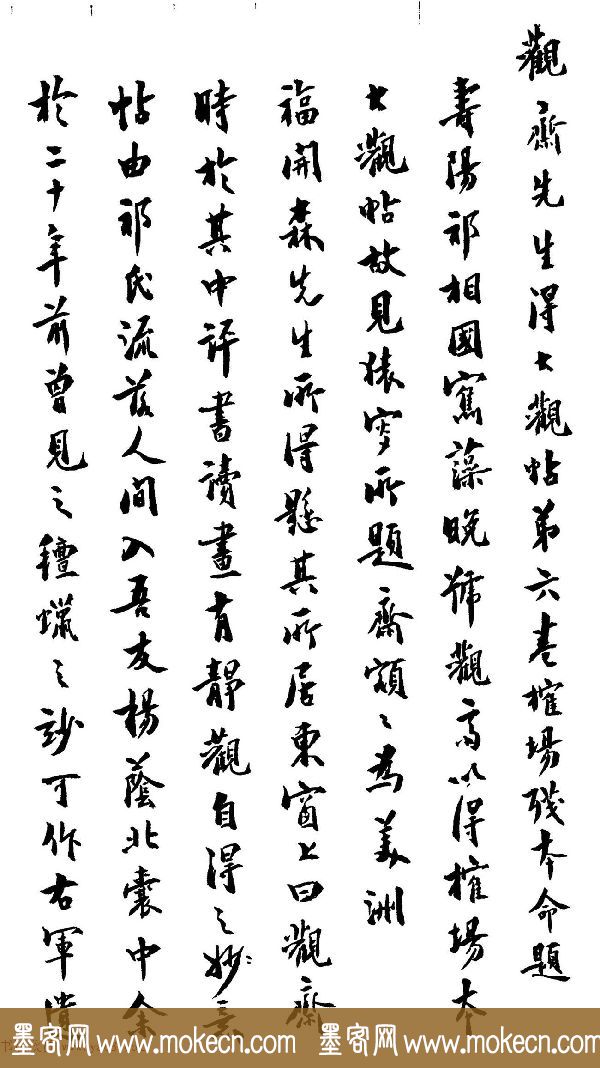 觀齋先生得大觀帖第六卷榷場殘本命題
壽陽祁相國寯藻晚號觀齋以得榷場本
大觀帖故見猿叟所題齋額々為美洲
福開森先生所得懸其所居東窗上曰觀齋
時於其中評書讀畫有靜觀自得之妙々
帖由祁氏流落人間入吾友楊蔭北囊中余
於二十年前曾見之氊蠟之妙可作右軍
墨客网 www.mokecn.com 墨客网 www.mokecn.com